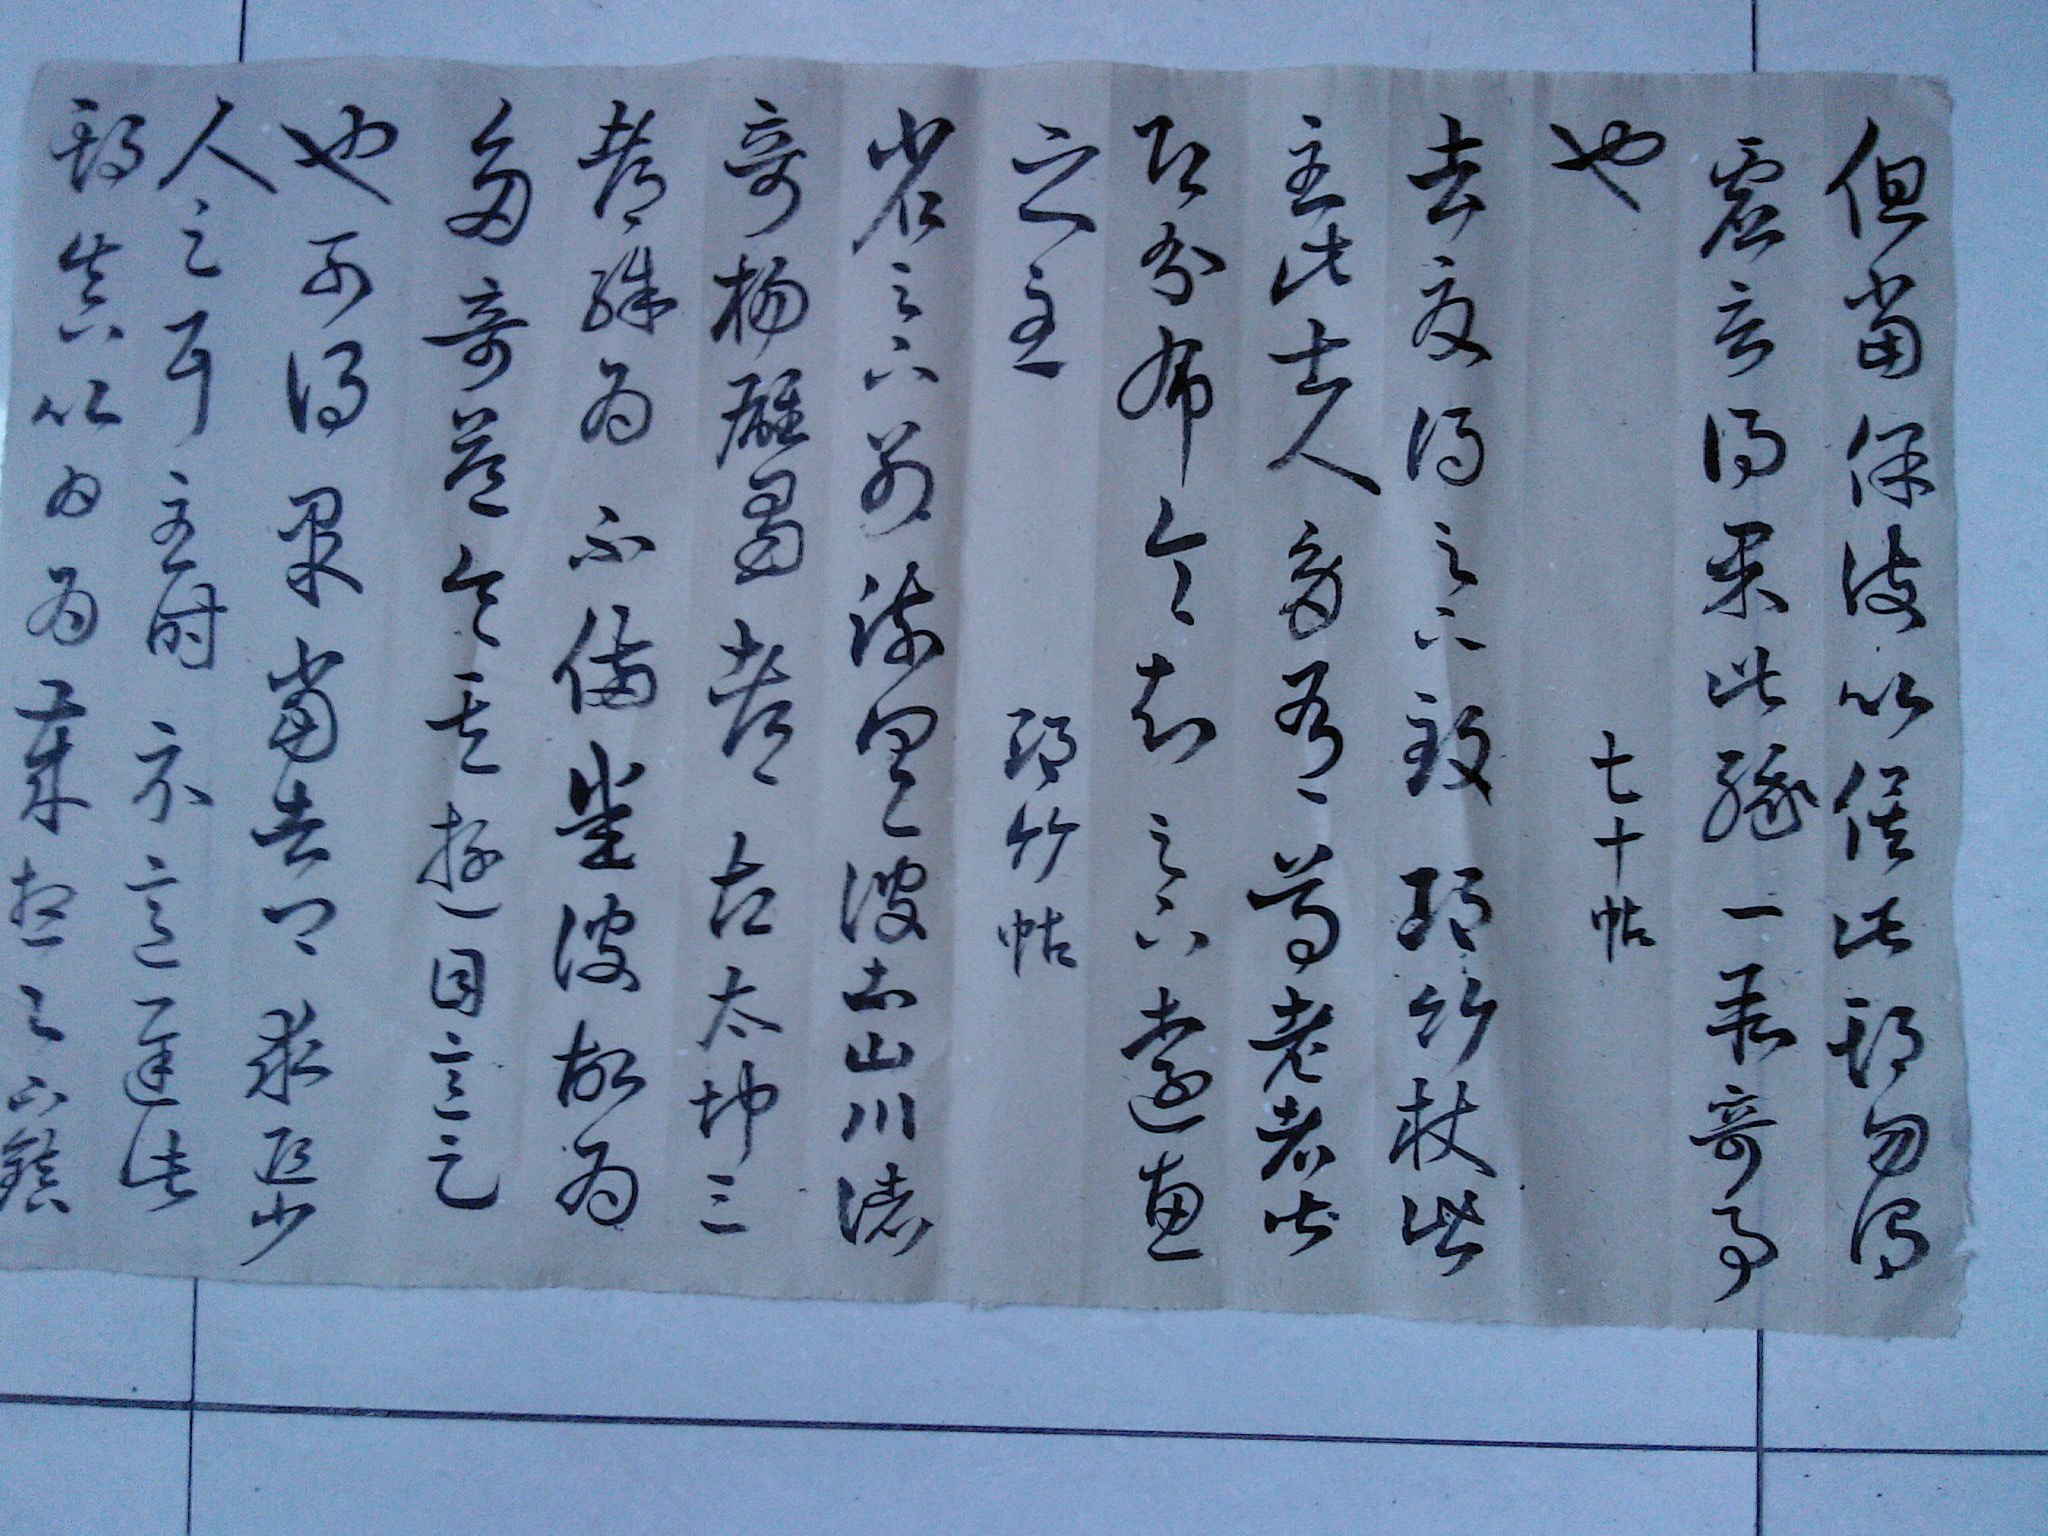 但當保護以俟此期勿謂
虛言得果此緣一段奇事
也 七十帖
去夏得足下致邛竹杖皆
至此士人多有尊老者皆
即分布令知足下遠惠
之至 邛竹帖
省足下別疏具彼土山川諸
奇楊雄蜀都左太沖三
都殊為不備悉彼故為
多奇益令其遊目意足
也可得果當告卿求迎少
人足耳至時示意遲此
期真以日為歲想足下鎮